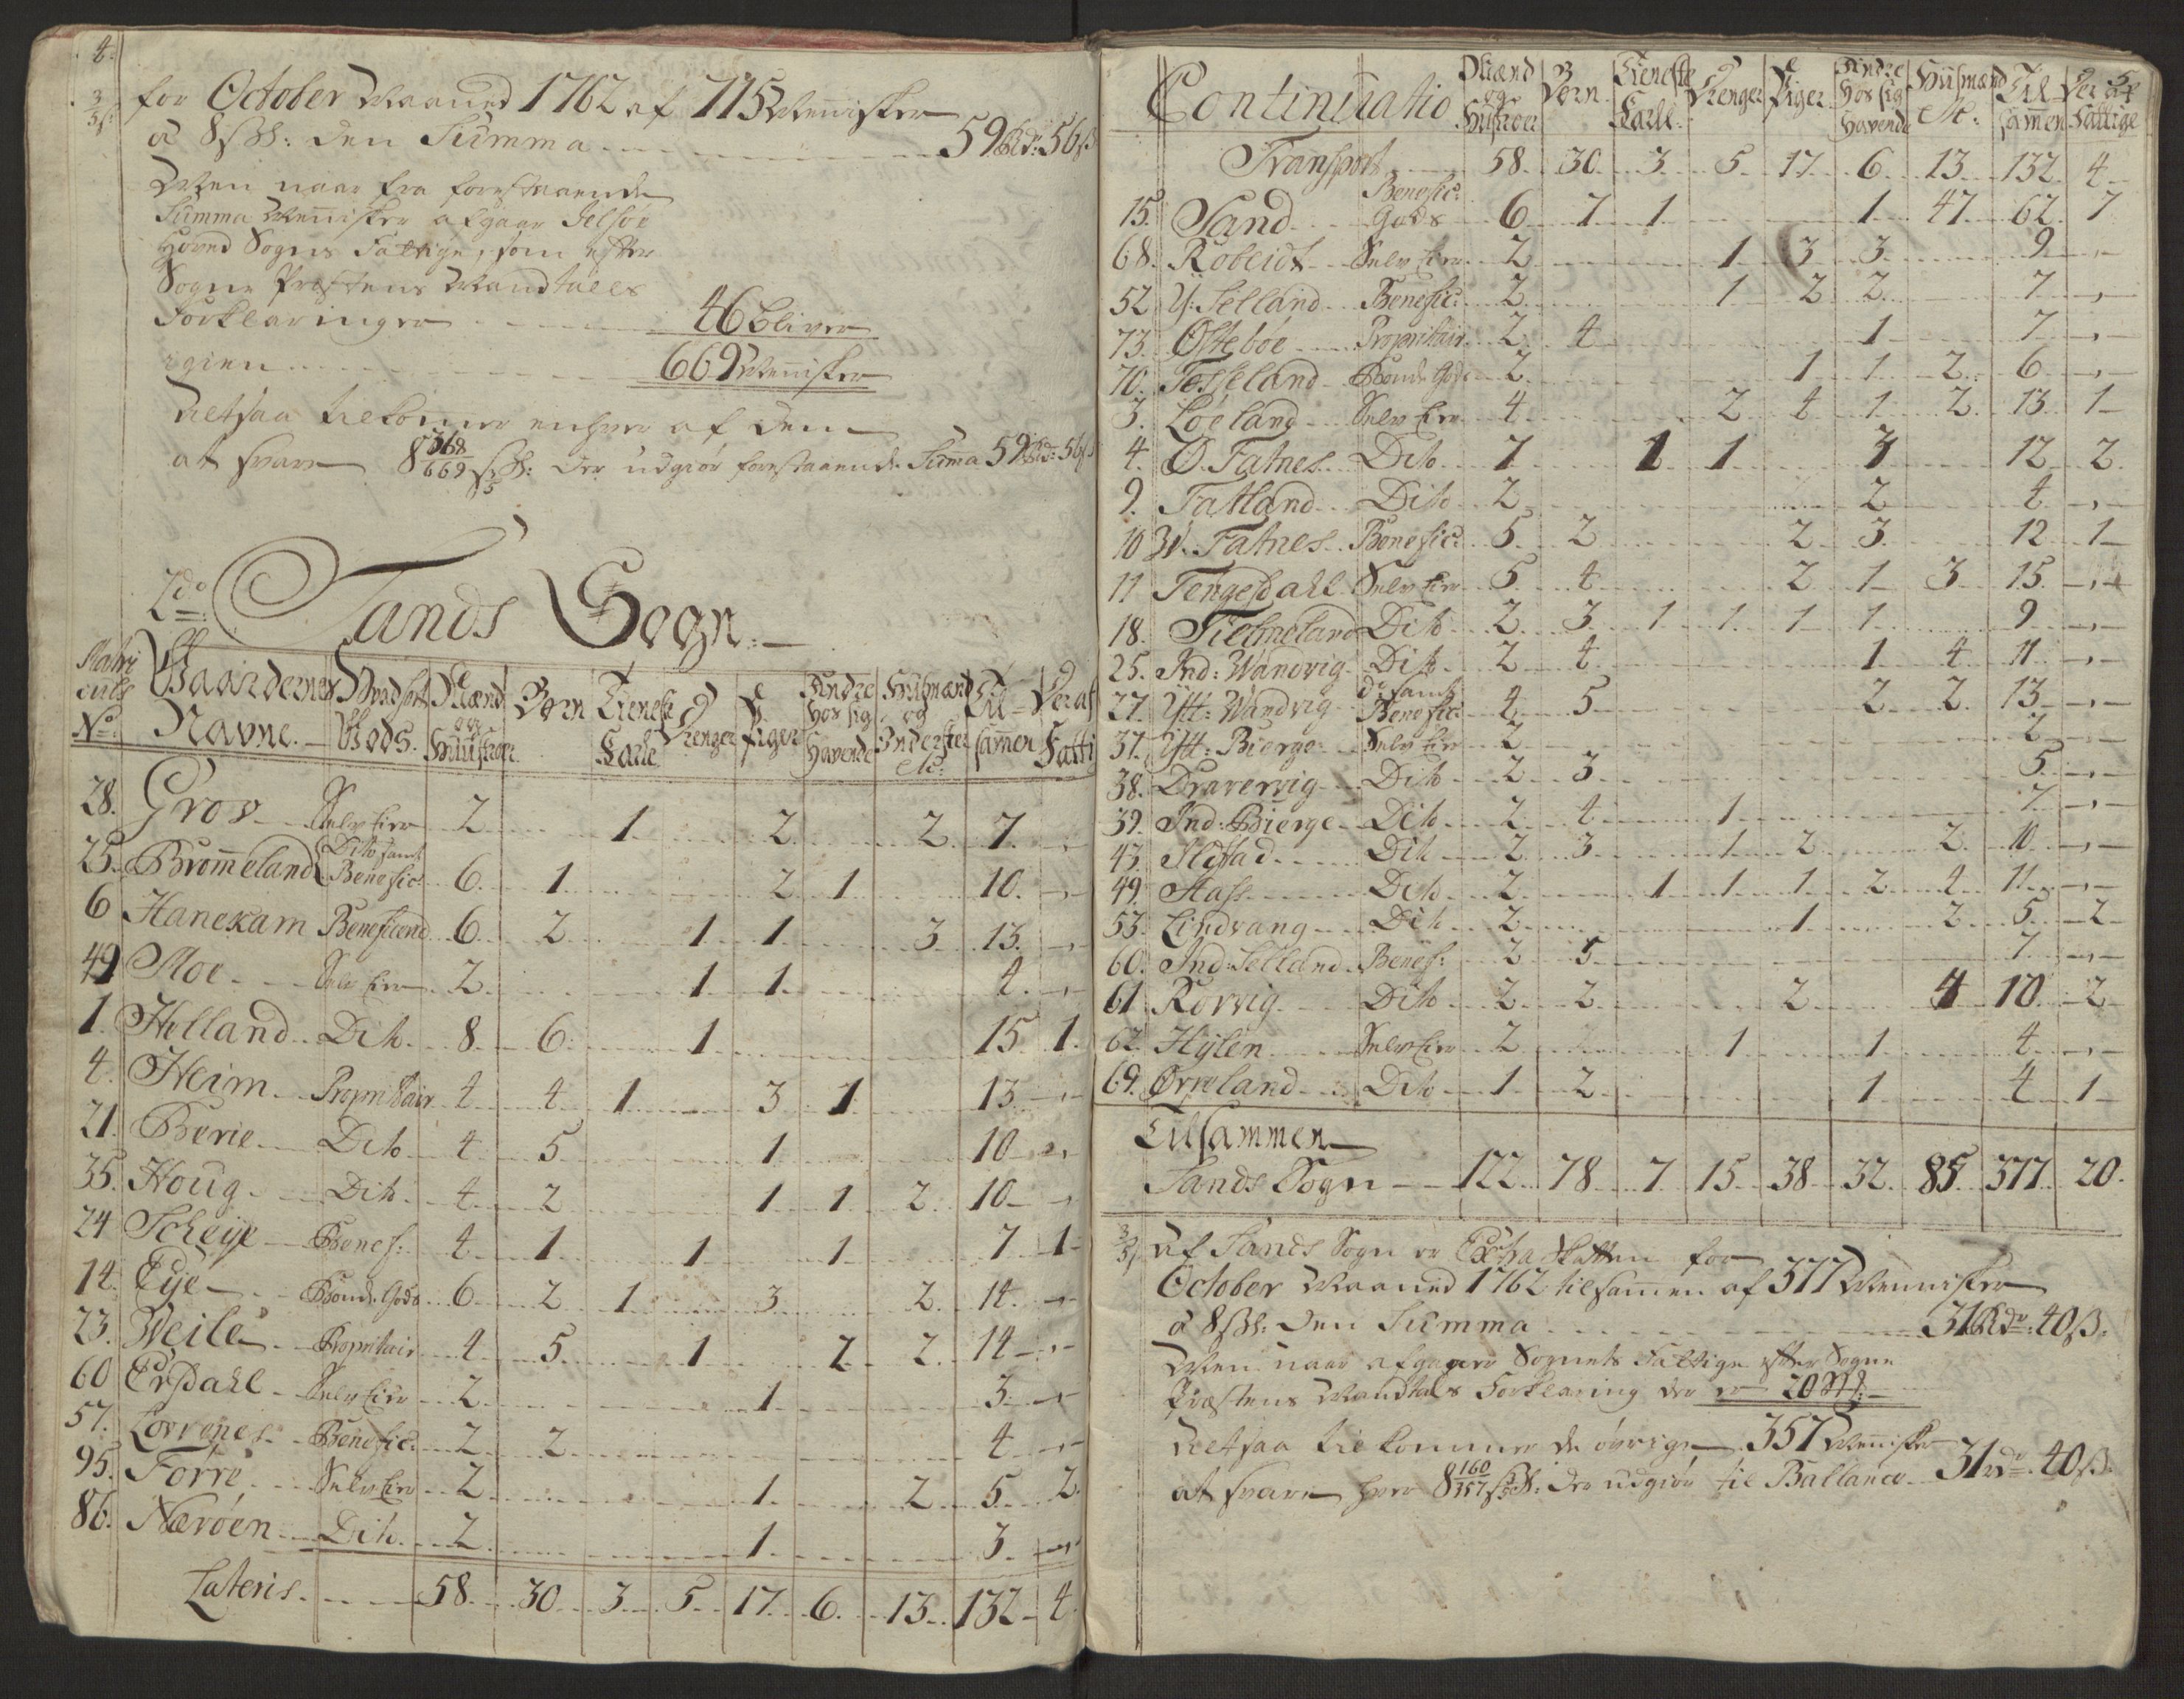 4.
for October Maaned 1762 af 715 Mennisker
a 8 sk: den Summa 59 Rd: 56 s
Men naar fra forestaaende
Summa Mennisker afgaar Jelsøe
Hoved Sogns Fattige, som efter
Sogne Præstens Mandtalls
Forklaringer 46 bliver
igien 669 Mennisker
Altsaa tilkommer enhver af dem
at svare 8 368/669 sk: der udgiør forestaaende Summa 59 Rd: 56 s
2do Sands Sogn.
Matriculs No. Gaardernes Navne. Hvad slot Gods. Mænd og Hustroer Børn Tieneste Karle Drenger Piger Andre Hos sig Havende Huusmænd og Inderster etc: Til sammen Deraf Fatti
28. Grov Selv Eier 2 1 2 2 7
25. Brommeland Dito samt Benefic: 6 1 2 1 10
6 Hanekam Beneficend 6 2 1 1 3 13
49 Moe Selv Eier 2 1 1 4
1. Helland Dito 8 6 1 15 1
4. Heim Propritair 4 4 1 3 1 13
21. Berie Dito 4 5 1 10
35. Houg Dito 4 2 1 1 2 10
24 Scheije Benef: 4 1 1 1 7 1
14. Eije Bonde Gods 6 2 1 3 2 14
23. Weila Propritair 4 5 1 2 2 14
60 Ersdahl Selv Eier 2 1 3
57. Lovrenes Benefic: 2 2 4
95. Førre Selv Eier 2 1 2 5 2
86. Nærøen Dito 2 1 3
Lateris 58 30 3 5 17 6 13 132 4
5
Continuatio Mænd og Hustroer Børn Tieneste Karle Drenger Piger Andre Hos sig Havende Huusmænd etc: Til samen Deraf Fattige
Transport 58 30 3 5 17 6 13 132 4
15. Sand Benefic: Gods 6 7 1 1 47 62 7
68. Robeidt Selv Eier 2 1 3 3 9
52 Y: Selland Benefic: 2 1 2 2 7
73. Østebøe Propritair 2 4 1 7
70. Tesseland Bonde Gods 2 1 1 2 6
3. Løeland Selv Eier 4 2 4 1 2 13 1
4. Ø. Fatnes Dito 7 1 1 3 12 2
9. Fatland Dito 2 2 4
10 W. Fatnes Benefic: 5 2 2 3 12 1
11 Tengesdall Selv Eier 5 4 2 1 3 15
18. Tielmeland Dito 2 3 1 1 1 1 9
25. Ind: Wandvig Dito 2 4 1 4 11
27. Ytt: Wandvig do samt Benefic: 4 5 2 2 13
37. Ytt: Bierge Selv Eier 2 2
38. Dravervig Dito 2 3 5
39. Ind: Bierge Dito 2 4 1 7
43. Sløstad Dito 2 3 1 2 2 10
49. Stafs Dito 2 1 1 1 2 4 11
53. Lindvang Dito 2 1 2 5 2
60. Ind: Selland Benef: 2 5 7
61. Rørvig Dito 2 2 2 4 10 2
62. Hylen Selv Eier 2 1 1 4
69. Ørreland Dito 1 2 1 4 1
Tilsammen
Sands Sogn 122 78 7 15 38 32 85 377 20
Af Sands Sogn er Extra Skatten for
October Maaned 1762 tilsamen af 377 Mennisker
a 8 sk: den Summa 31 Rdr: 40 s.
Men naar afgaaer Sognets Fattige efter Sogne
Præstens Mandtals Forklaring der er 20 St:
Altsaa tilkommer de øvrige 357 Mennisker
at svare hver 8 160/357 sk: der udgiør til Ballance 31 rdr. 40 s.